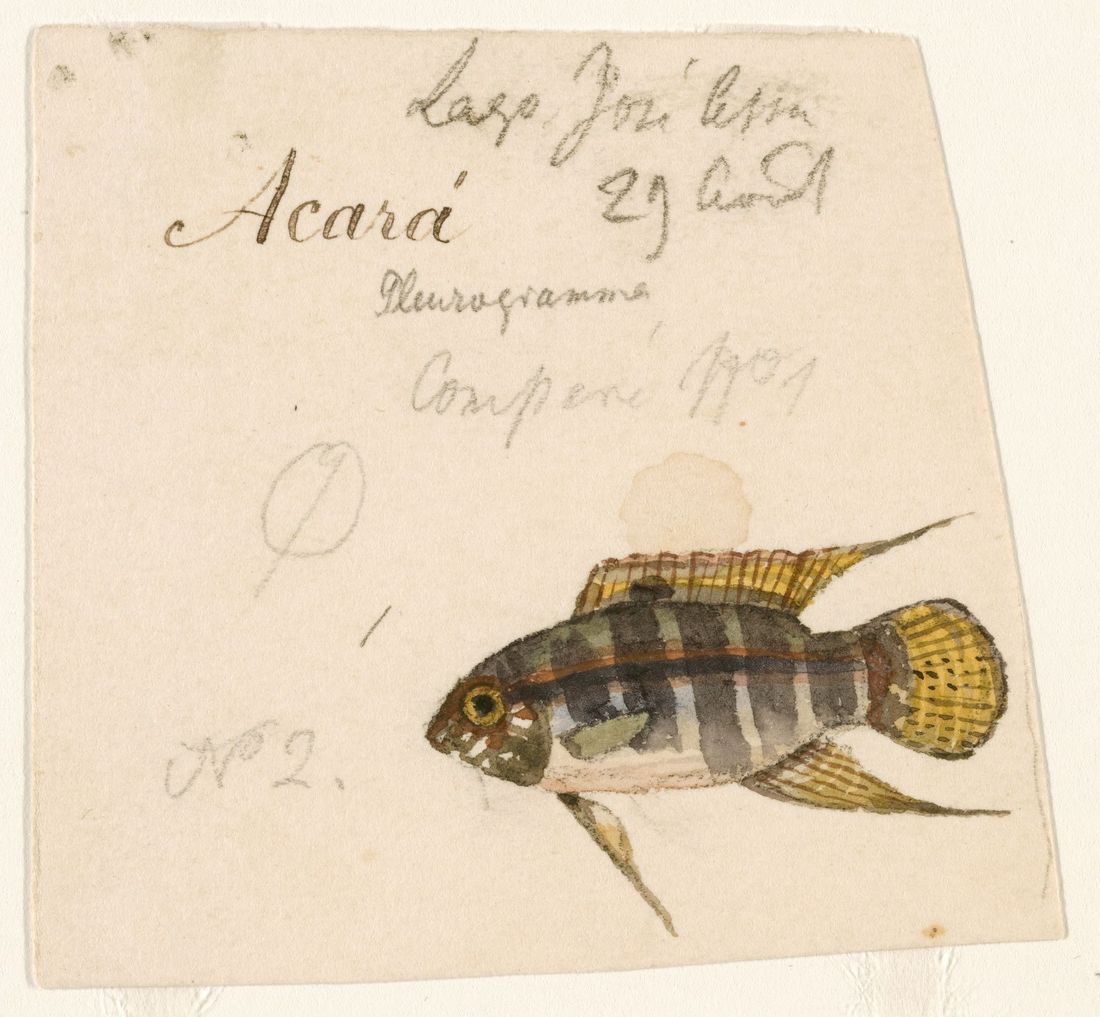 Lago José
29 Août
Acará
Pleurogramma
Comparé Nº 1
Nº 2.